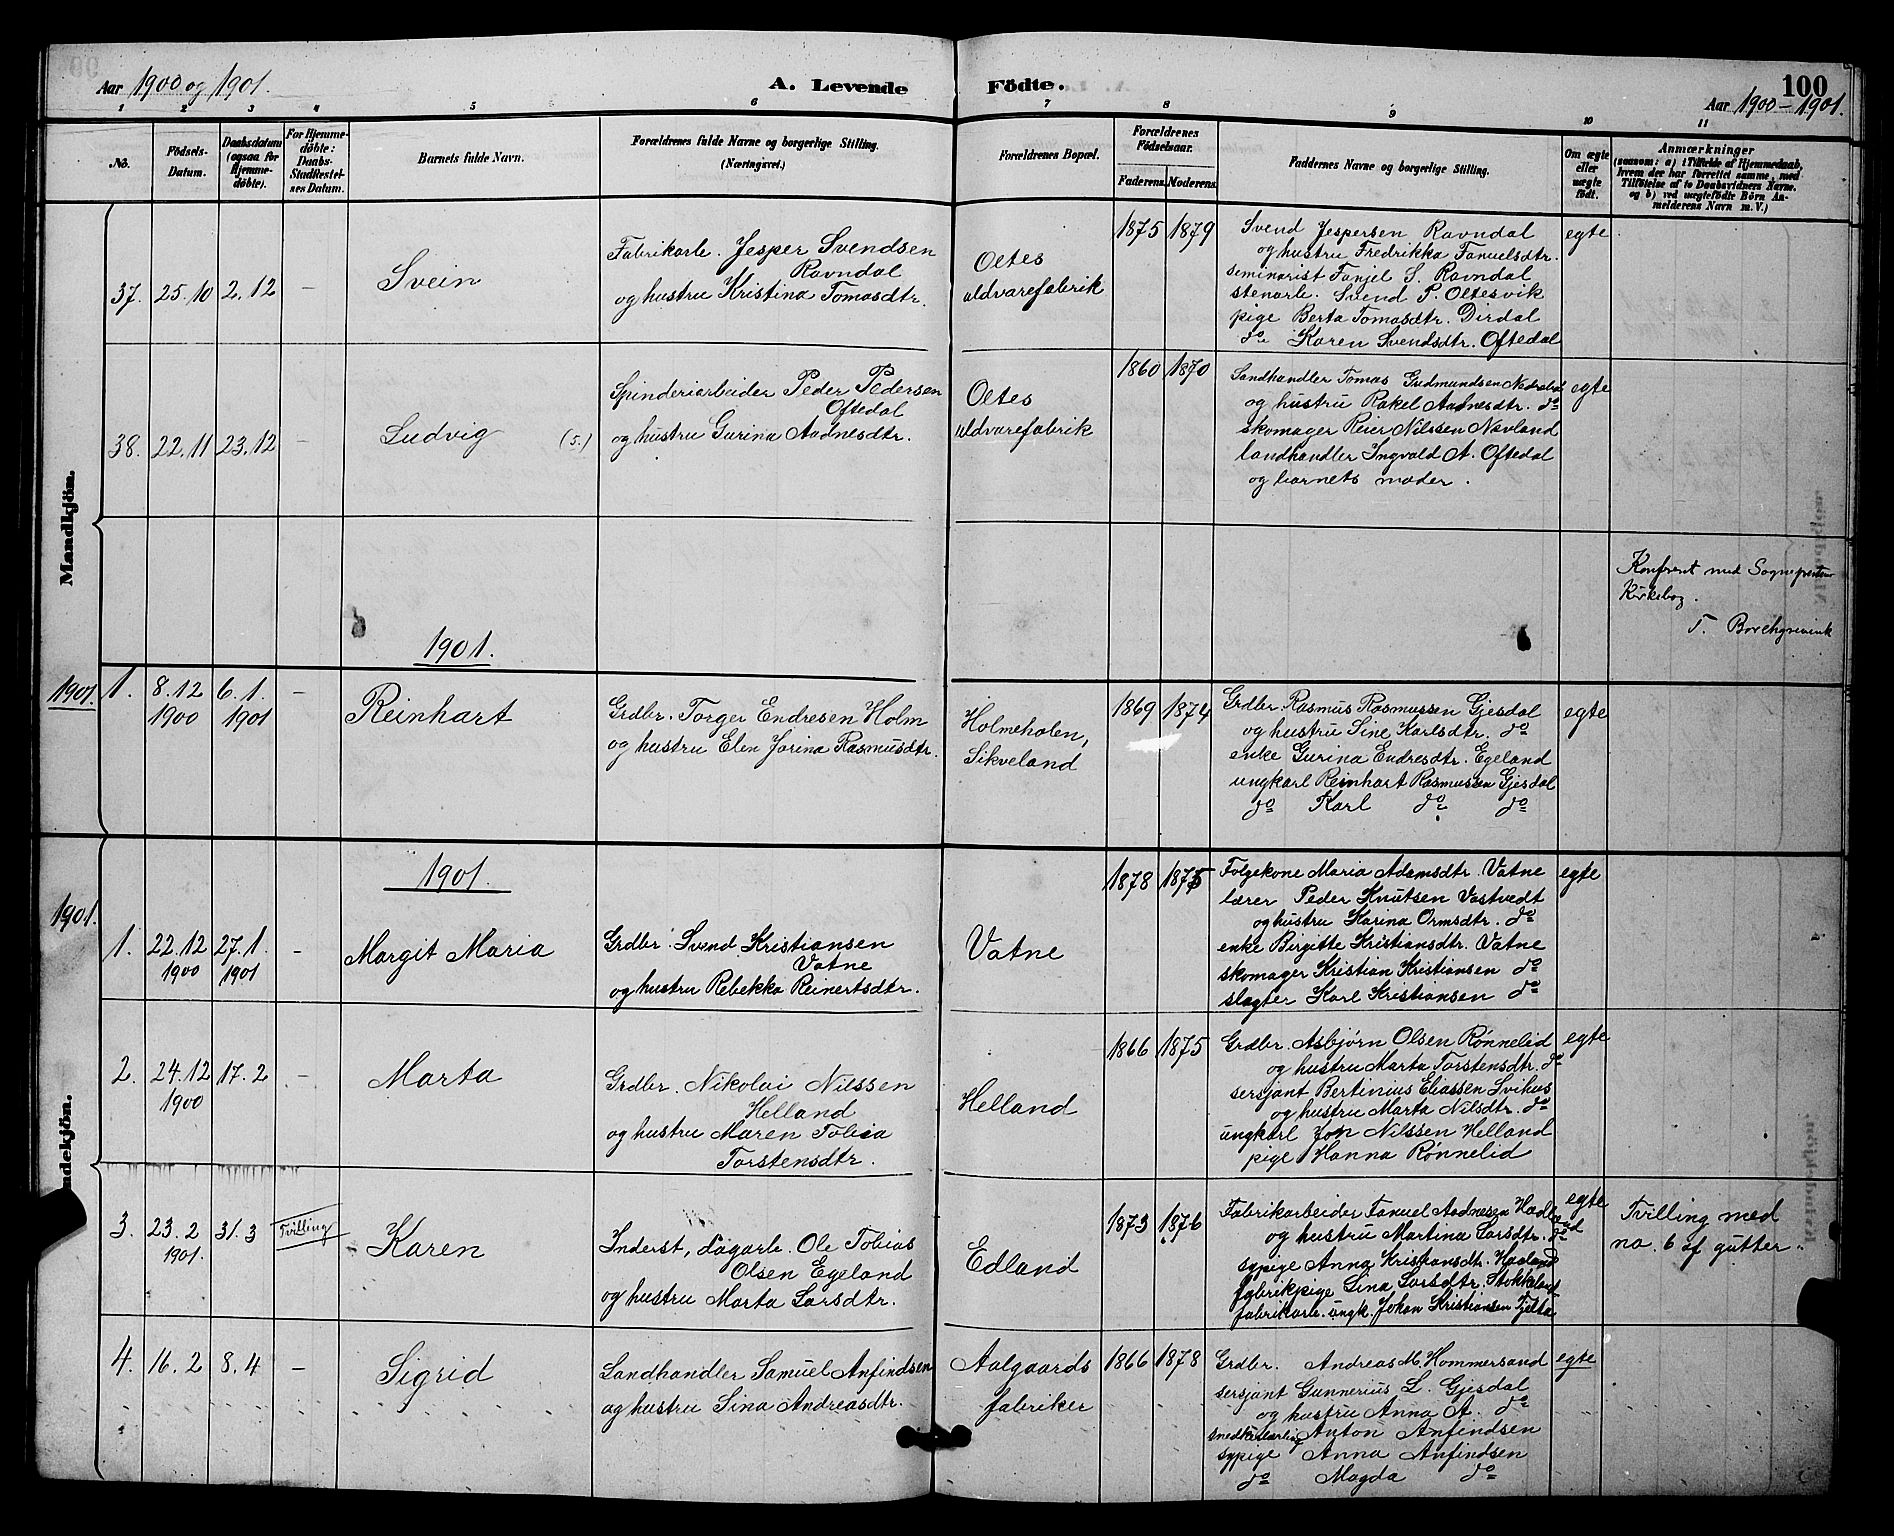 Aar 1900 og 1901.
A. Levende Födte.
100
Aar 1900-1901.
1 2 3 4 5 6 7 8 9 10 11
No.
Födsels-Datum.
Daabsdatum (ogsaa for Hjemmedöbte).
For Hjemmedöbte: Daabs-Stadfæstelses Datum.
Barnets fulde Navn.
Forældrenes fulde Navne og borgerlige Stilling.
(Næringsvei.)
Forældrenes Bopæl.
Forældrenes Födselsaar.
Faderens. Moderens.
Faddernes Navne og borgerlige Stilling.
Om ægte eller uægte födt.
Anmærkninger
(saasom: a) i Tilfælde af Hjemmedaab, hvem der har forrettet samme, med Tilföielse af to Daabsvidners Navne, og b) ved uægtefödte Börn Anmelderens Navn m. V.)
Mandkjön.
37. 25.10 2.12 –
Svein
Fabrikarb. Jesper Svendsen
Ravndal
og hustru Kristina Tomasdtr.
Oltes
uldvarefabrik
1875 1879
Svend Jespersen Ravndal
og hustru Fredrikka Tanuelsdtr.
seminarist Tanjel S. Ravndal
stenarb. Svend P. Oltesvik
pige Berta Tomasdtr. Dirdal
do Karen Svendsdtr. Oftedal
egte
38. 22.11 23.12 –
Ludvig (s.)
Spinderiarbeider Peder Pedersen
Oftedal
og hustru Gurina Aadnesdtr.
Oltes
uldvarefabrik
1860 1870
Landhandler Tomas Gudmundsen
og hustru Rakel Aadnesdtr. do
skomager Reier Nilssen Navland
landhandler Ingvald A. Oftedal
og barnets moder.
egte
Konferert med Sogneprestens
Kirkebog.
T. Borchgrevink
1901.
1901. 1. 8.12 6.1. –
1900 1901
Reinhart
Grdbr. Torger Endresen Holm
og hustru Elen Jorina Rasmusdtr.
Holmeholen,
Sikveland
1869 1874
Grdbr. Rasmus Rasmussen Gjesdal
og hustru Sine Karlsdtr. do
enke Gurina Endresdtr. Egeland
ungkarl Reinhart Rasmussen Gjesdal
do Karl do do
egte
1901.
1901.
1. 22.12 27.1. –
1900 1901
Margit Maria
Grdbr. Svend Kristiansen
Vatne
og hustru Rebekka Reinertsdtr.
Vatne
1878 1875
Folgekone Maria Adamsdtr. Vatne
lærer Peder Knutsen Vastvedt
og hustru Karina Ormsdtr. do
enke Birgitte Kristiansdtr. Vatne
skomager Kristian Kristiansen do
slagter Karl Kristiansen do
egte
ndekjön.
2. 24.12 17.2 –
1900
Marta
Grdbr. Nikolai Nilssen
Helland
og hustru Maren Tobia
Torstensdtr.
Helland
1866 1875
Grdbr. Asbjørn Olsen Rønnelid
og hustru Marta Torstensdtr. do
sersjant Bertinius Eliassen Svihus
og hustru Marta Nilsdtr. do
ungkarl Jon Nilssen Helland
pige Hanna Rønnelid
egte
3. 23.2 31.3 Tvilling
1901.
Karen
Inderst, dagarb. Ole Tobias
Olsen Egeland
og hustru Marta Larsdtr.
Edland
1873 1876
Fabrikarbeider Tanuel Aadnesen Haaland
og hustru Martina Larsdtr. do
sypige Anna Kristiansdtr. Haaland
fabrikpige Lina Larsdtr. Stokkeland
fabrikarb. ungk. Johan Kristiansen Tjelta
egte
Tvilling med
no. 6 af gutter.
4. 16.2 8.4 –
Sigrid
Landhandler Samuel Anfindsen
og hustru Sina Andreasdtr.
Aalgaards
fabriker
1866 1878
Grdbr. Andreas M. Hommersand
sersjant Gunnerius L. Gjesdal
og hustru Anna A. do
snedkerlærling Anton Anfindsen
sypige Anna Anfindsen
do Magda do
egte